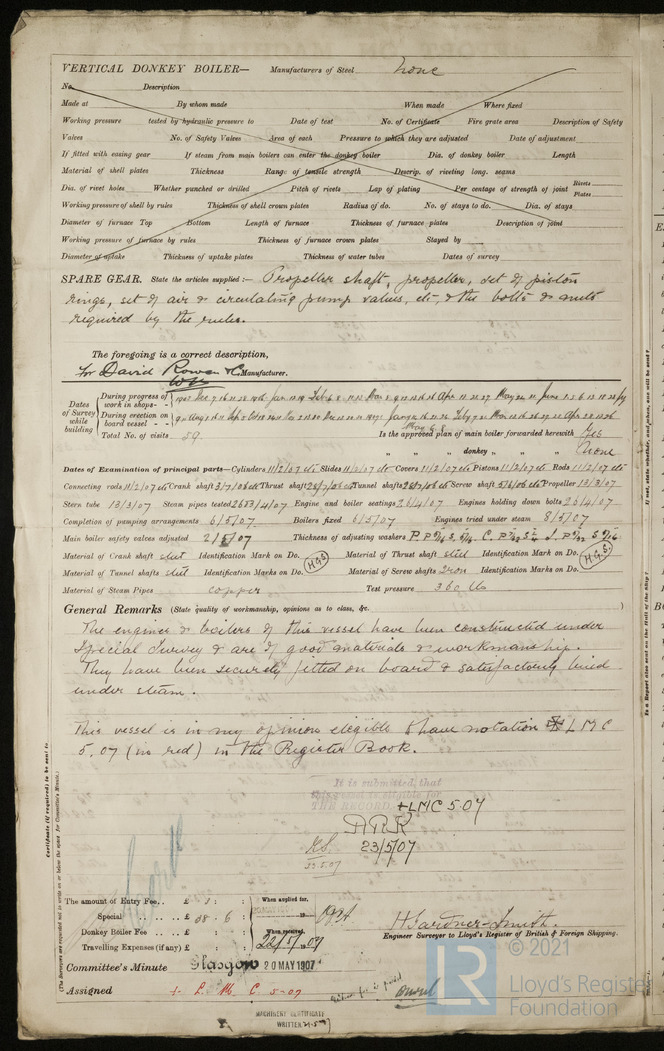 VERTICAL DONKEY BOILER— Manufacturers of Steel None
No. Description
Made at By whom made When made Where fixed
Working pressure tested by hydraulic pressure to Date of test No. of Certificate Fire grate area Description of Safety
Valves No. of Safety Valves Area of each Pressure to which they are adjusted Date of adjustment
If fitted with easing gear If steam from main boilers can enter the donkey boiler Dia. of donkey boiler Length
Material of shell plates Thickness Range of tensile strength Descrip. of riveting long. seams
Dia. of rivet holes Whether punched or drilled Pitch of rivets Lap of plating Per centage of strength of joint Rivets Plates
Working pressure of shell by rules Thickness of shell crown plates Radius of do. No. of stays to do. Dia. of stays
Diameter of furnace Top Bottom Length of furnace Thickness of furnace plates Description of joint
Working pressure of furnace by rules Thickness of furnace crown plates Stayed by
Diameter of uptake Thickness of uptake plates Thickness of water tubes Dates of survey
SPARE GEAR. State the articles supplied:— Propeller shaft, propeller, set of piston
rings, set of air & circulating pump valves, etc, & the bolts & nuts
required by the rules.
The foregoing is a correct description,
for David Rowan & Co. Manufacturer.
Dates of Survey while building
During progress of work in shops - -
During erection on board vessel - - -
Total No. of visits 59
Is the approved plan of main boiler forwarded herewith Yes
" " " donkey " " " None
Dates of Examination of principal parts—Cylinders 11/2/07 etc Slides 11/2/07 etc Covers 11/2/07 etc Pistons 11/2/07 etc Rods 11/2/07 etc
Connecting rods 11/2/07 etc Crank shaft 3/7/06 etc Thrust shaft 25/7/06 etc Tunnel shafts 25/7/06 etc Screw shaft 5/6/06 etc Propeller 13/3/07
Stern tube 13/3/07 Steam pipes tested 26 & 3/4/07 Engine and boiler seatings 26/4/07 Engines holding down bolts 26/4/07
Completion of pumping arrangements 6/5/07 Boilers fixed 6/5/07 Engines tried under steam 8/5/07
Main boiler safety valves adjusted 2/5/07 Thickness of adjusting washers
Material of Crank shaft steel Identification Mark on Do. H.G.S Material of Thrust shaft steel Identification Mark on Do. H.G.S.
Material of Tunnel shafts steel Identification Marks on Do. Material of Screw shafts Iron Identification Marks on Do.
Material of Steam Pipes copper Test pressure 360 lbs
General Remarks (State quality of workmanship, opinions as to class, &c. )
The engines & boilers of this vessel have been constructed under
Special Survey & are of good materials & workmanship.
They have been securely fitted on board & satisfactorily tried
under steam.
This vessel is in my opinion eligible to have notation ✠ L M C
5.07 (in red) in the Register Book.
It is submitted, that
this vessel is eligible for
THE RECORD. + LMC 5.07
23/5/07
23.5.07
The amount of Entry Fee.. £ 3 : : When applied for,
Special .. .. .. .. £ 38 . 6 :
Donkey Boiler Fee .. .. £ : : When received,
Travelling Expenses (if any) £ : : 22/5/1907
H. Gardner-Smith.
Engineer Surveyor to Lloyd's Register of British & Foreign Shipping.
Committee's Minute Glasgow 20 MAY 1907
Assigned + L. M. C. 5-07
MACHINERY CERTIFICATE
WRITTEN
Certificate (if required) to be sent to
(The Surveyors are requested not to write on or below the space for Committee's Minute.)
© 2021
LR
Lloyd's Register
Foundation